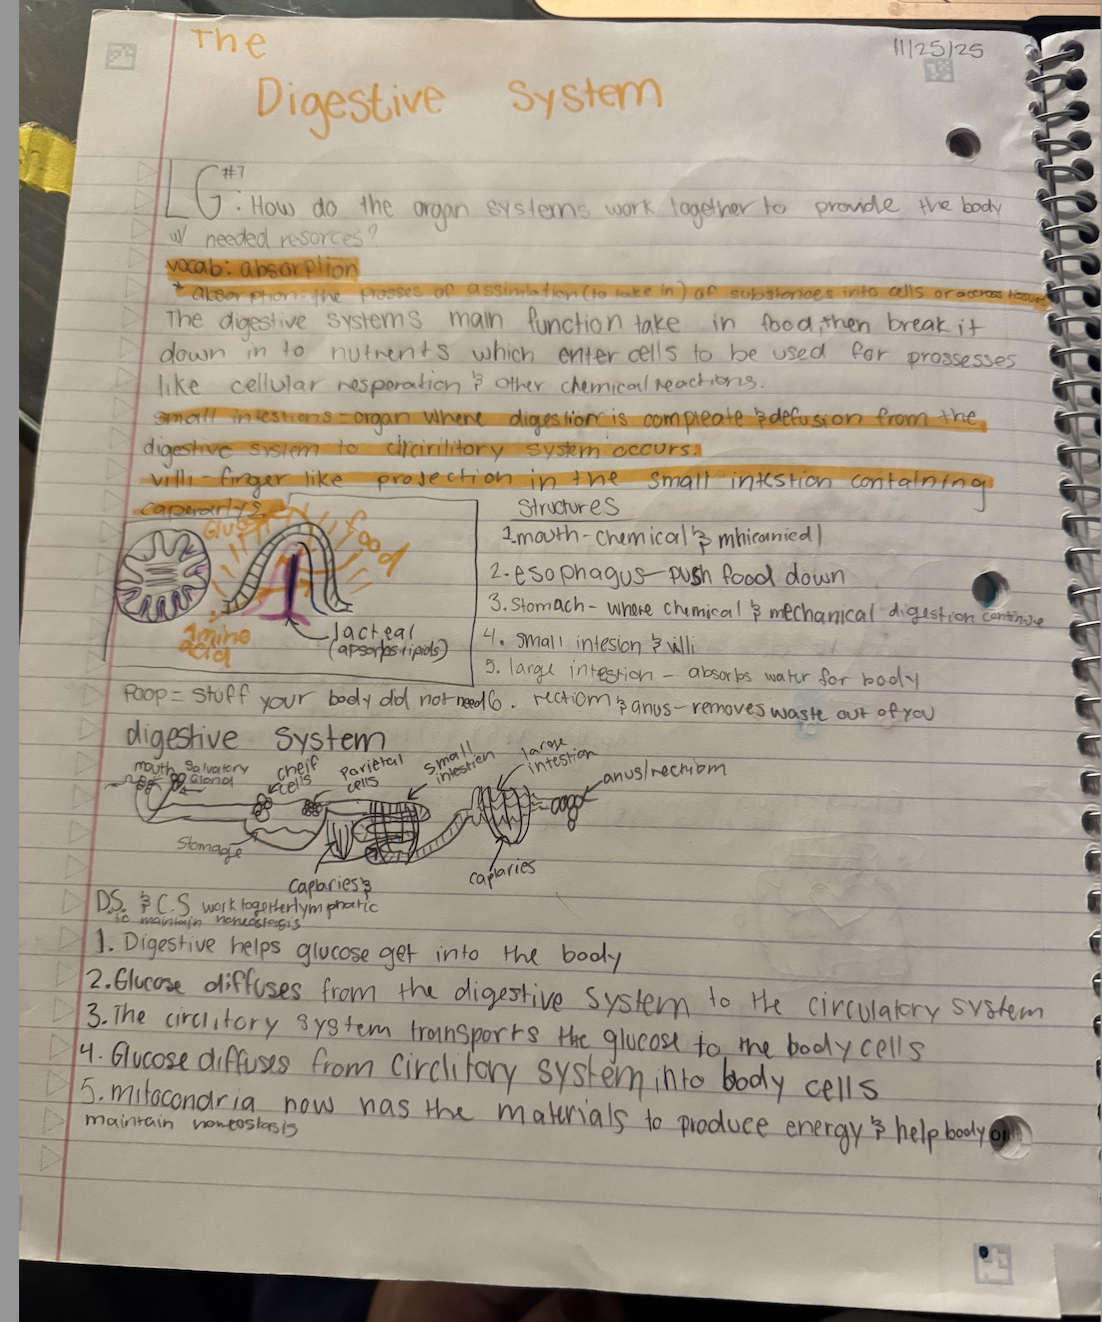 The
11/25/25
Digestive System
LG #7: How do the organ systems work together to provide the body
w/ needed resorces?
vocab: absorption
* absorption-the prosses of assimilation (to take in) of substances into cells or across tissues
The digestive systems main function take in food, then break it
down in to nutrents which enter cells to be used for prossesses
like cellular resporation & other chemical reactions.
small intestions-organ where digestion is compleate & defusion from the
digestive system to circirilitory system occurs.
villi-finger like projection in the small intestion containing
caperarlys.
Glu
food
Amino
acid
lacteal
(apsorbs lipids)
Structures
1. mouth-chemical & mhicanied
2. esophagus-push food down
3. Stomach-where chemical & mechanical digestion continue
4. small intesion & villi
5. large intestion - absorbs water for body
Poop= stuff your body did not need
6. rectiom & anus-removes waste out of you
digestive system
mouth
Salvatory
Gland
cheif
cells
parietal
cells
small
intestien
large
intestion
anus/rectibm
Stomage
Caplaries &
lymphatic
caplaries
D.S. & C.S work together
to maintain homeostasis
1. Digestive helps glucose get into the body
2. Glucose diffuses from the digestive system to the circulatory system
3. The circlitory system transports the glucose to the body cells
4. Glucose diffuses from Circlitory system into body cells
5. mitocondria now has the materials to produce energy & help body
maintain homeostasis